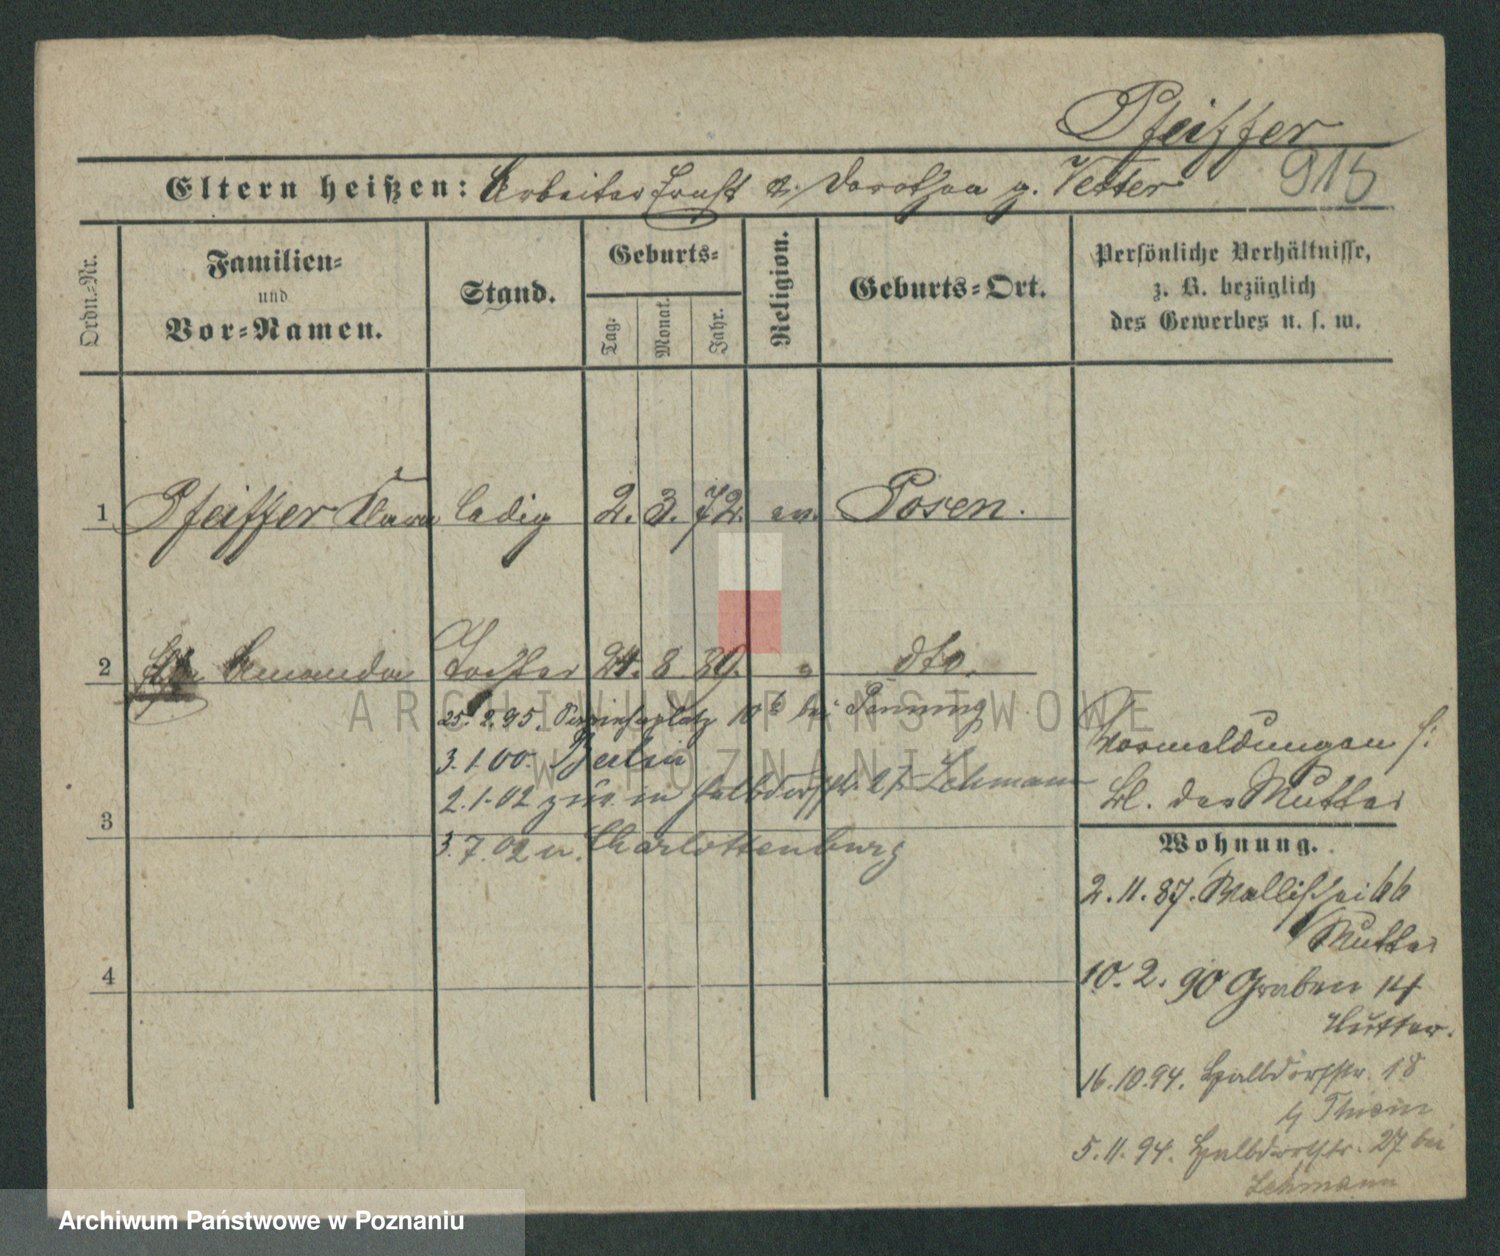 Pfeiffer
915
Eltern heißen: Arbeiter Ernst & Dorothea g. Vetter
Ordn.-Nr.
Familien-
und
Vor-Namen.
Stand.
Geburts-
Tag.
Monat.
Jahr.
Religion.
Geburts-Ort.
Persönliche Verhältnisse,
z. B. bezüglich
des Gewerbes u. s. w.
1 Pfeiffer Klara ledig 2. 3. 72. ev. Posen.
2 Amanda Tochter 24. 8. 89. " dto.
25. 2. 95. 10b bei Pannung
3. 1. 00. Berlin
2. 1. 02 zur. in Halbdorfstr. 27 Lehmann
3
3. 7. 02 n. Charlottenburg
4
Vormeldungen s:
Bl. der Mutter
Wohnung.
2. 11. 87. Wallischei 66
Mutter
10. 2. 90 Graben 14
Mutter.
16. 10. 94. Halbdorfstr. 18
b/ Thiem
5. 11. 94. Halbdorfstr. 27 bei
Lehmann
ARCHIWUM PAŃSTWOWE
W POZNANIU
Archiwum Państwowe w Poznaniu